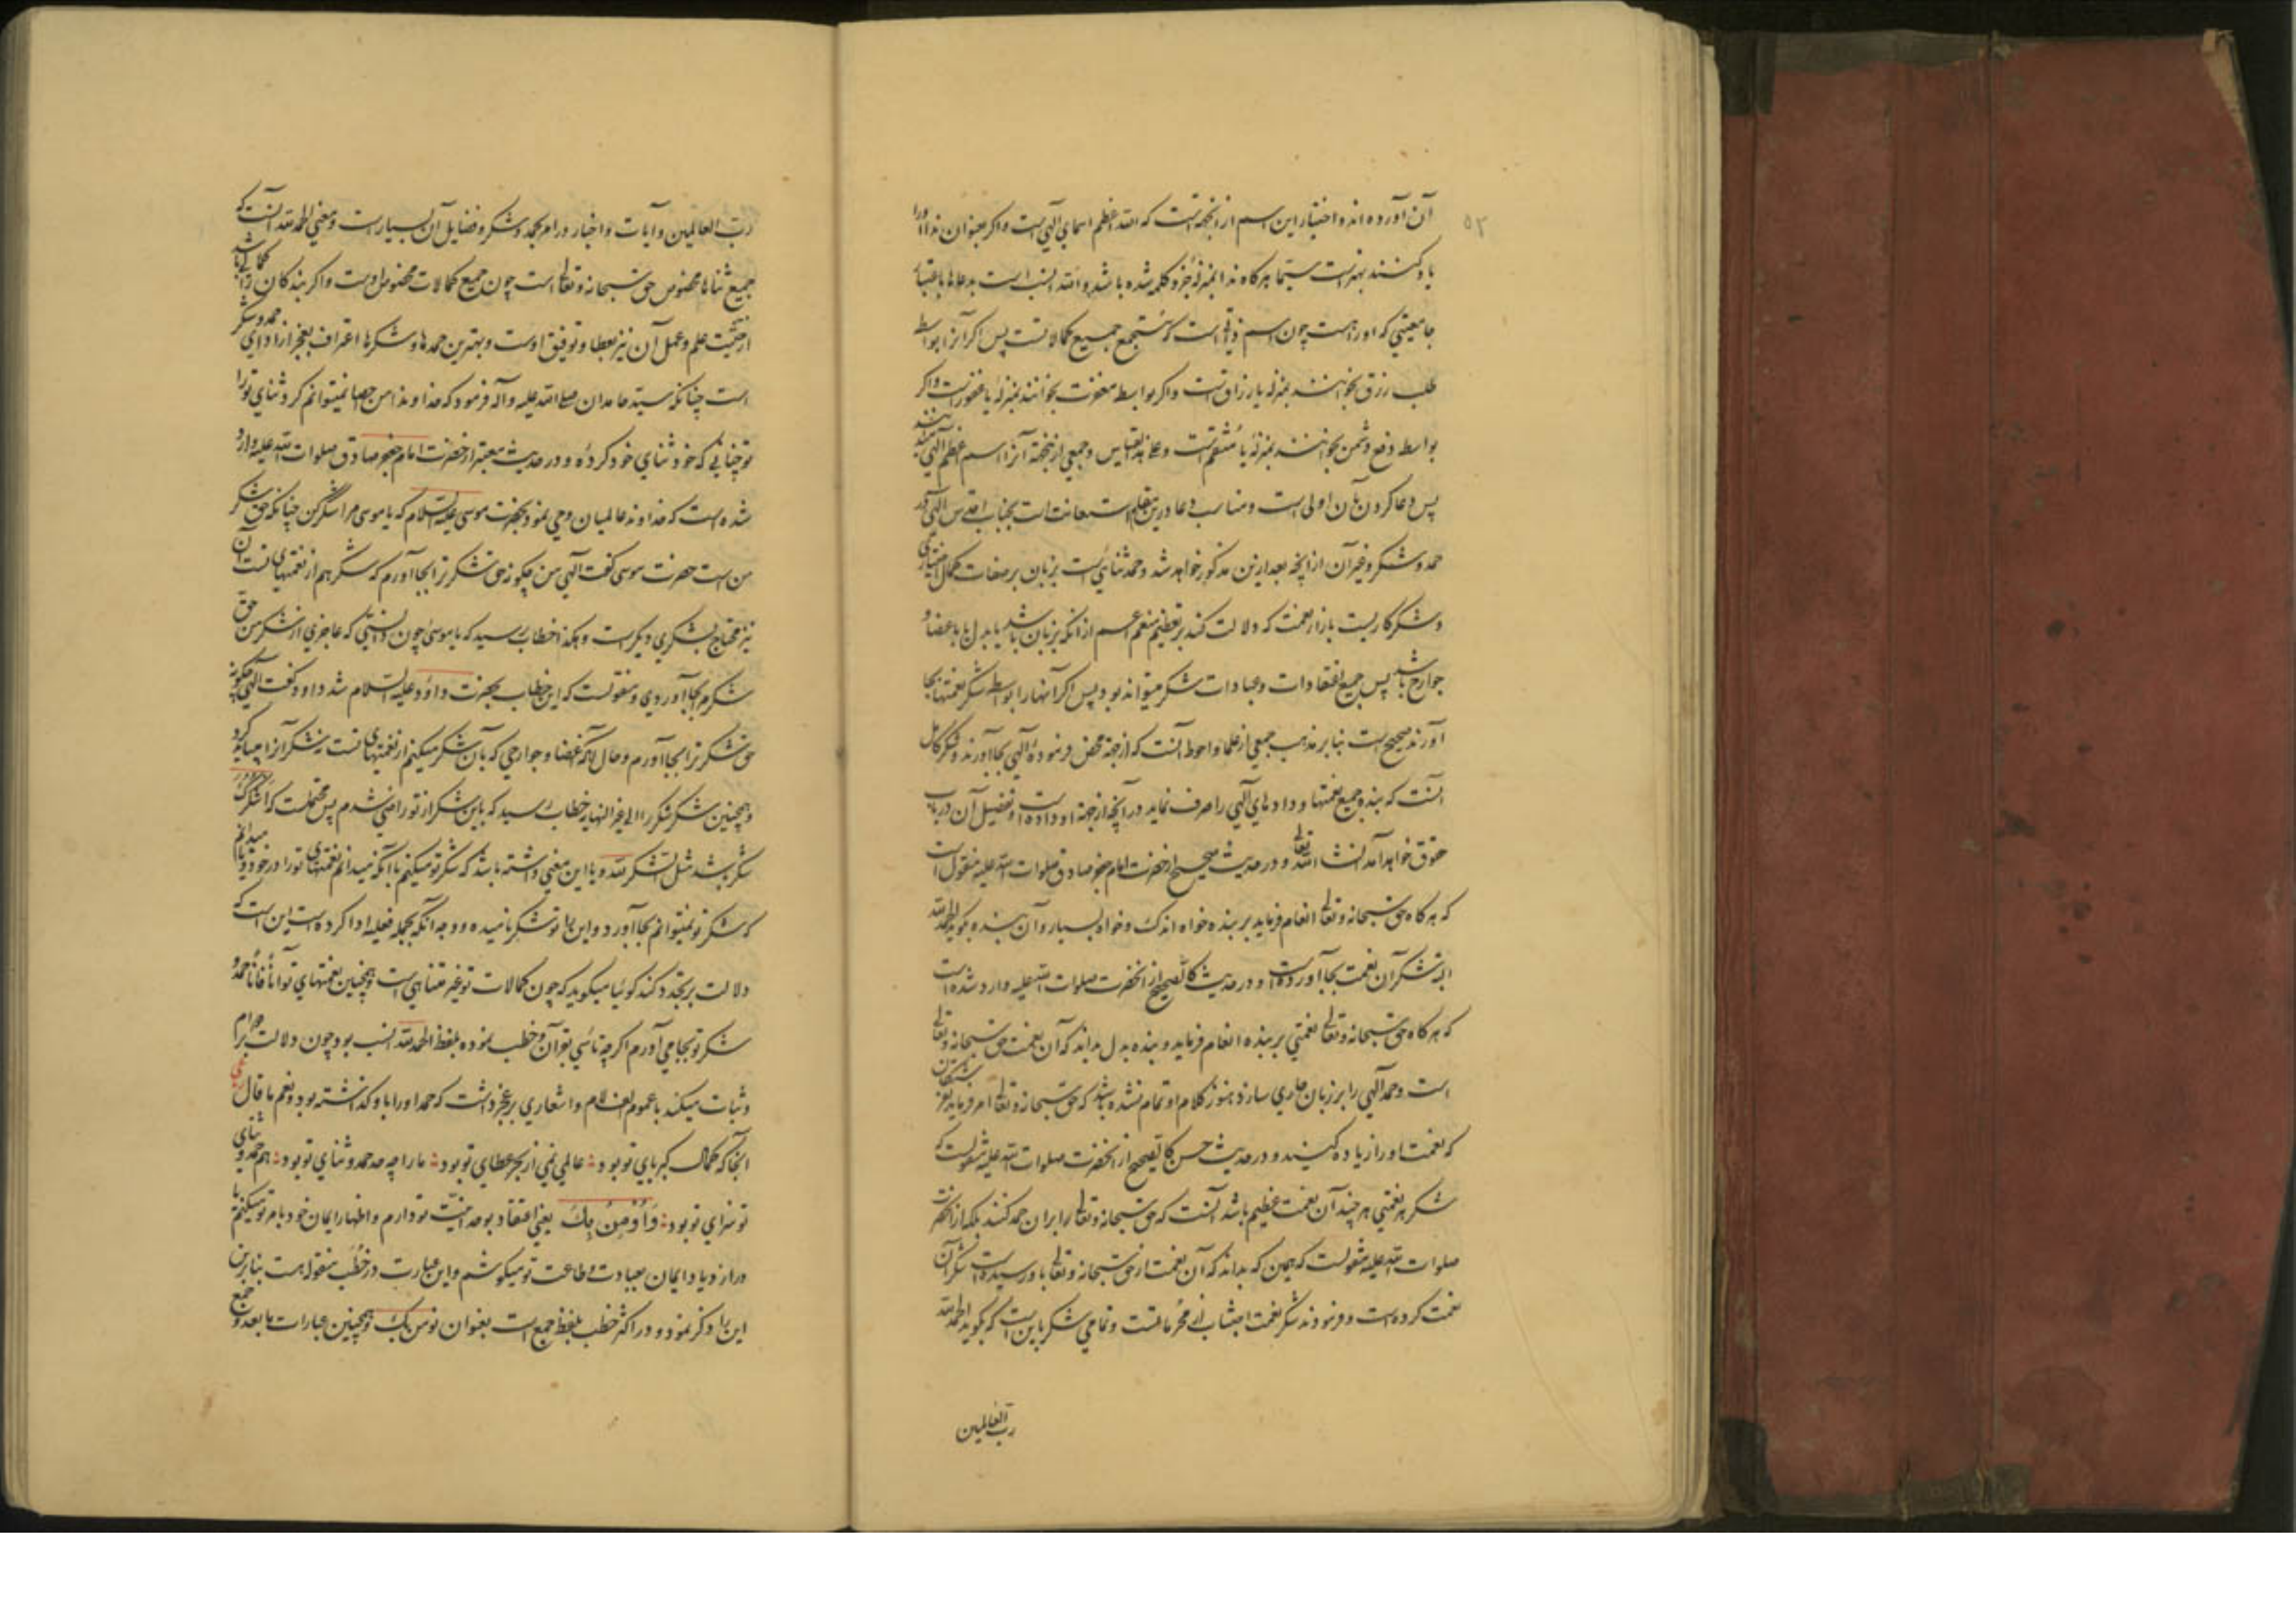 ۵۳
آن آورده‌اند و اختیار این اسم از آنجهتست که الله اعظم اسمای الهی است و اگر بعنوان ندا او را
یاد کنند بهتر است سیّما هرگاه ندا بمنزله جزو کلمه شده باشد و الله انسب است بدعاها باعتبار
جامعیتی که او راهست چون اسم ذاتی است که مستجمع جمیع کمالاتست پس اگر آنرا بواسطه
طلب رزق بخوانند بمنزله یا رزاقست و اگر بواسطه مغفرت بخوانند بمنزله یا غفورست و اگر
بواسطه دفع دشمن بخوانند بمنزله یا منتقمست و علی هذا القیاس و جمعی ازینجهة آنرا اسم اعظم الهی میدانند
پس دعا کردن بآن اولی است و مناسب دعا درین مقام استعانت است بجناب اقدس الهی در
حمد و شکر و غیر آن از آنچه بعد ازین مذکور خواهد شد و حمد ثنائیست بزبان بر صفات کمال اختیاری
و شکر کاریست بازاء نعمت که دلالت کند بر تعظیم منعم اعم از آنکه بزبان باشد یا بدل یا باعضا و
جوارح باشد پس جمیع اعتقادات و عبادات شکر میتواند بود پس اگر آنها را بواسطه شکر نعمتها بجا
آورند صحیح است بنابر مذهب جمعی از علما و احوط آنست که از جهة محض فرموده الهی بجا آورند و شکر کامل
آنست که بنده جمیع نعمتها و دادهای الهی را صرف نماید در آنچه از جهة او داده است و تفصیل آن در باب
حقوق خواهد آمد انشاء الله تعالی و در حدیث صحیح از حضرت امام جعفر صادق صلوات الله علیه منقول است
که هرگاه حق سبحانه و تعالی انعام فرماید بر بنده خواه اندک و خواه بسیار و آن بنده بگوید الحمد لله
البته شکر آن نعمت بجا آورده است و در حدیث کالصحیح از آنحضرت صلوات الله علیه وارد شده است
که هرگاه حق سبحانه و تعالی نعمتی بر بنده انعام فرماید و بنده بدل بداند که آن نعمت حق سبحانه و تعالی
است و حمد الهی را بر زبان جاری سازد هنوز کلام او تمام نشده باشد که حق سبحانه و تعالی امر فرماید بفرشتگان
که نعمت او را زیاده کنید و در حدیث حسن کالصحیح از آنحضرت صلوات الله علیه منقولست که
شکر هر نعمتی هر چند آن نعمت عظیم باشد آنست که حق سبحانه و تعالی را بر آن حمد کنند بلکه از آنحضرت
صلوات الله علیه منقولست که همین که بداند که آن نعمت از حق سبحانه و تعالی باو رسیده است شکر آن
نعمت کرده است و فرمودند شکر نعمت اجتناب از محرماتست و تمامی شکر باین است که بگوید الحمد لله
رب العالمین
رب العالمین و آیات و اخبار در امر بحمد و شکر و فضایل آن بسیار است و معنی الحمد لله آنست که
جمیع ثناها مخصوص حق سبحانه و تعالی است چون جمیع کمالات مخصوص اوست و اگر بندگان را کمالی باشد
از حیثیت علم و عمل آن نیز بعطا و توفیق اوست و بهترین حمدها و شکرها اعتراف بعجز از ادای حمد و شکر
است چنانکه سید حامدان صلی الله علیه و آله فرمود که خداوندا من احصا نمیتوانم کرد ثنای تو را
تو چنانی که خود ثنای خود کرده و در حدیث معتبر از حضرت امام جعفر صادق صلوات الله علیه وارد
شده است که خداوند عالمیان وحی نمود بحضرت موسی علیه السلام که یا موسی مرا شکر کن چنانکه حق شکر
من است حضرت موسی گفت الهی من چگونه حق شکر ترا بجا آورم که شکر هم از نعمتهای تست آن
نیز محتاج بشکری دیگرست و هکذا خطاب رسید که یا موسی چون دانستی که عاجزی از شکر من حق
شکرم بجا آوردی و منقولست که این خطاب بحضرت داود علیه السلام شد داود گفت الهی چگونه
حق شکر ترا بجا آورم و حال آنکه اعضا و جوارحی که بآن شکر میکنم از نعمتهای تست شکر آنرا میباید کرد
و همچنین شکر شکر را الی غیر النهایه خطاب رسید که باین شکر از تو راضی شدم پس محتملست که اشکرک
شکر باشد مثل الشکر لله و یا این معنی داشته باشد که شکر تو میکنم باآنکه میدانم نعمتهای تو را در خود و میدانم
که شکر تو نمیتوانم بجا آورد و این را تو شکر نامیده و وجه آنکه بجمله فعلیه ادا کرده است این است که
دلالت بر تجدد کند گوئیا میگوید که چون کمالات تو غیر متناهی است و همچنین نعمتهای تو آناً فآناً حمد و
شکر تو بجا می‌آورم اگر چه تاسی بقرآن و خطب نموده بلفظ الحمد لله انسب بود چون دلالت بر دوام
و ثبات میکند با عموم الف لام و اشعاری بر عجز داشت که حمد او را باو گذاشته بود و نعم ما قال
آنجا که کمال کبریای تو بود : عالمی نمی از بحر عطای تو بود : ما را چه حد حمد و ثنای تو بود : هم حمد و ثنای
تو سزای تو بود : وَاُؤمِنُ بِكَ یعنی اعتقاد بوحدانیت تو دارم و اظهار ایمان خود بامر تو میکنم یا
در ازدیاد ایمان بعبادت و طاعت تو میکوشم و این عبارت در خطب منقوله هست بنابرین
این را ذکر نموده و در اکثر خطب بلفظ جمع است بعنوان نومن بک و همچنین عبارات ما بعد و جمع